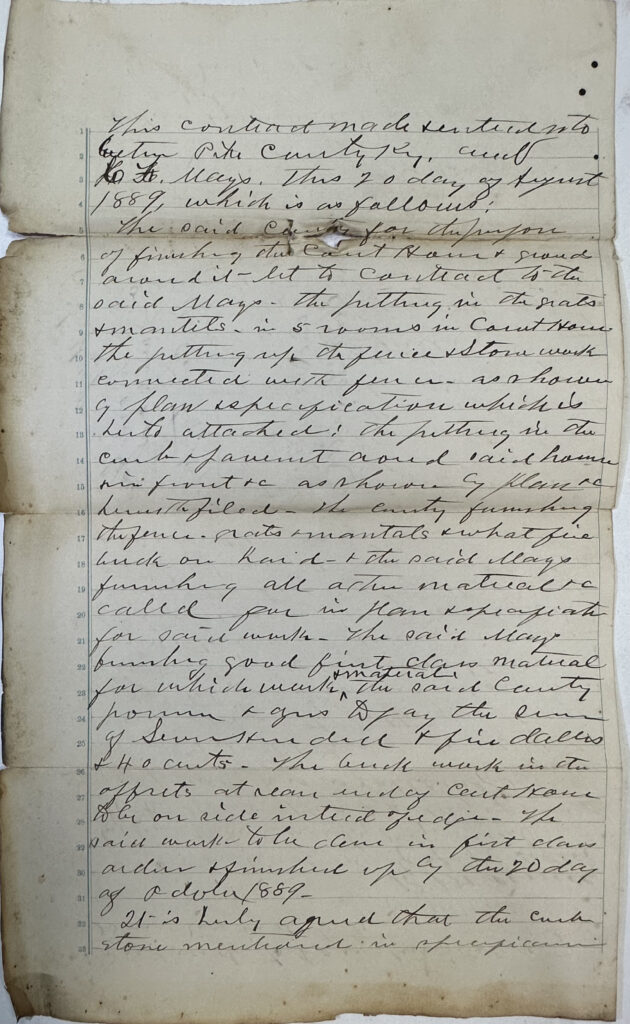 This contract made & entered into
between Pike County Ky, and
Mays. this 20 day of August
1889, which is as follows:
The said County for the purpose
of finishing the Court House & ground
around it - let to contract to the
said Mays - the putting in the grats
& mantels - in 5 rooms in Court House
the putting up the fence & Stone work
connected with fence - as shown
by plan & specification which is
hereto attached: the putting in the
curb & pavement around said house
& in front &c as shown by plan &c
herewith filed - The County furnishing
the fence - grats & mantals & what fire
brick on hand - & the said Mays
furnishing all other material &c
called for in plan & specificate
for said work - The said Mays
furnishing good first class material
& material
for which work ^ the said County
promises & agrees to pay the sum
of Seven Hundred & five dollars
& 40 cents - The brick work in the
offsets at rear end of Court House
to be on side instead of edge - The
said work to be done in first class
order & finished up by the 20 day
of October 1889 -
It is hereby agreed that the curb
stone mentioned in specification
1
2
3
4
5
6
7
8
9
10
11
12
13
14
15
16
17
18
19
20
21
22
23
24
25
26
27
28
29
30
31
32
33